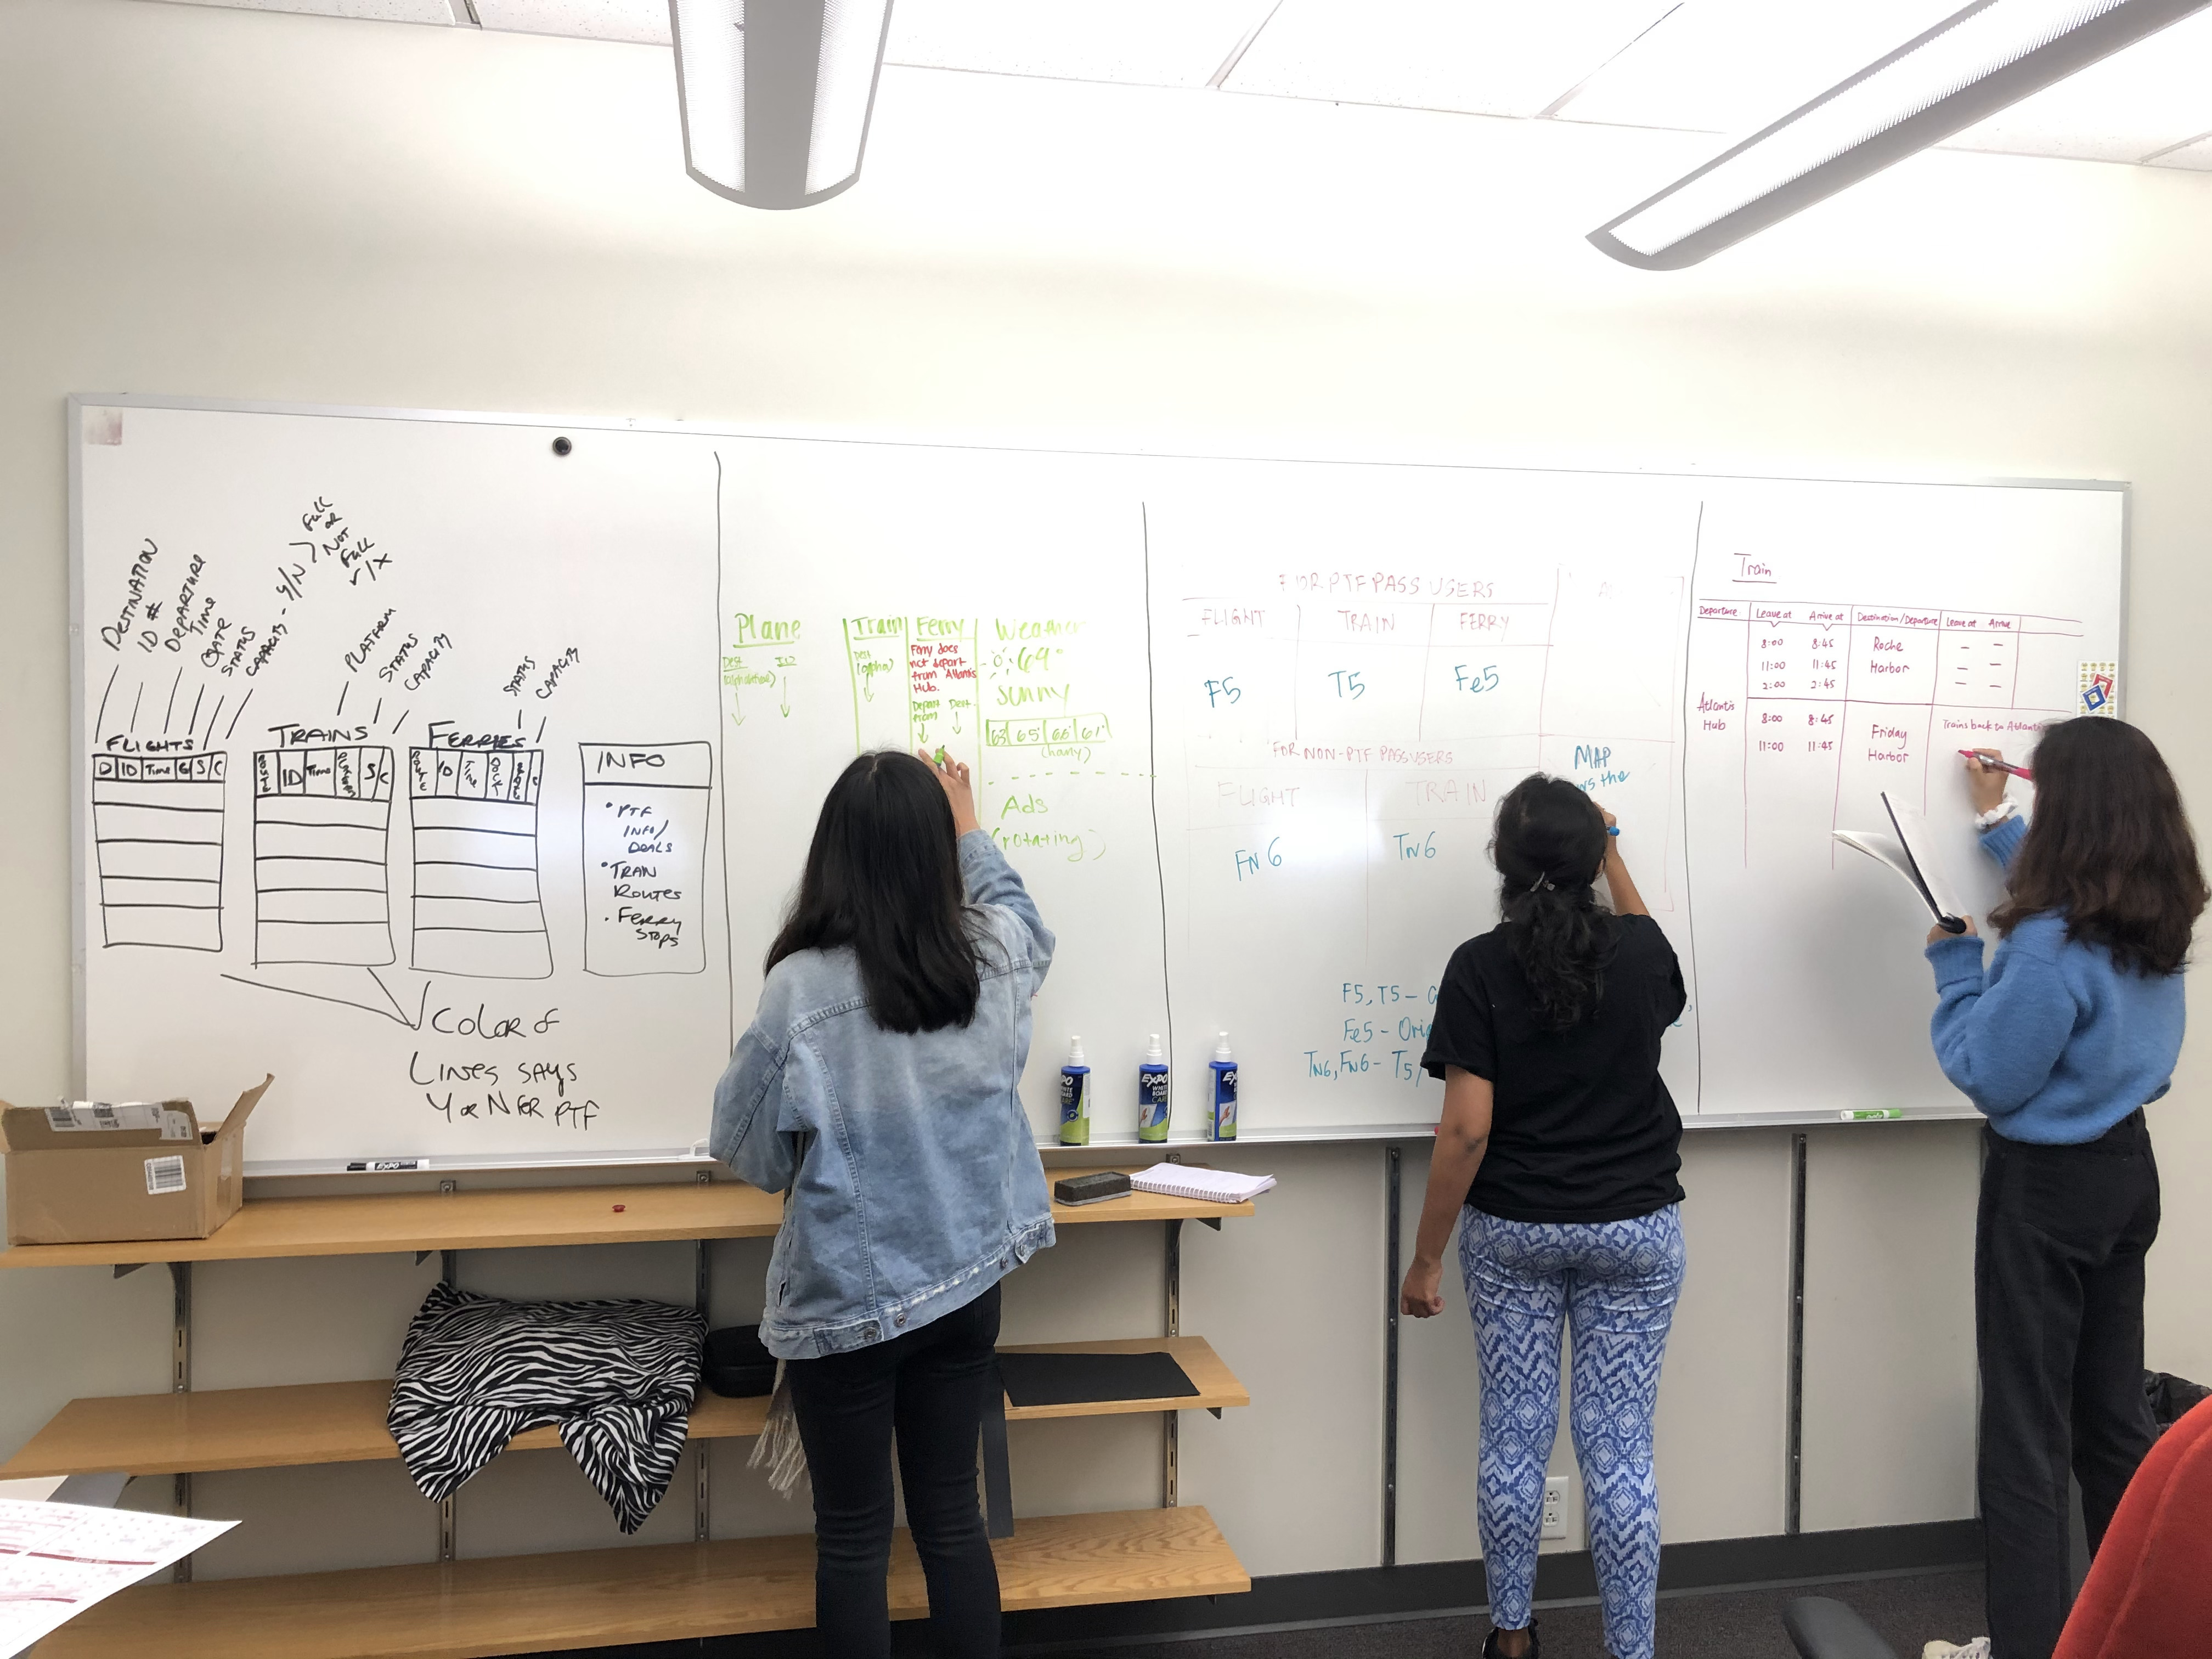 DESTINATION
ID #
DEPARTURE
Time
GATE
STATUS
CAPACITY - Y/N > Full
OR
NOT
Full
✓/X
PLATFORM
STATUS
CAPACITY
STATUS
CAPACITY
FLIGHTS
D ID Time G S C
TRAINS
ID Time S C
FERRIES
ID TIME DOCK C
INFO
• PTF
INFO/
DEALS
• TRAIN
ROUTES
• FERRY
STOPS
COLOR OF
LINES SAYS
Y OR N FOR PTF
Plane
Dest
(alphabetical)
Train
Dest
(alpha)
Ferry
Ferry does
not depart
from Atlantis
Hub.
Depart
from
Dest
Weather
69°
Sunny
63 65 66 61
Ads
(rotating)
FOR PTF PASS USERS
FLIGHT TRAIN FERRY
F5 T5 Fe5
FOR NON-PTF PASS USERS
FLIGHT TRAIN
FN6 TN6
MAP
the
F5, T5 -
Fe5 -
TN6, FN6 - T5,
Train
Departure Leave at Arrive at Destination/Departure Leave at Arrive
8:00 8:45 Roche — —
11:00 11:45 Harbor — —
2:00 2:45 — —
Atlantis
Hub
8:00 8:45 Friday
11:00 11:45 Harbor
Trains back to
EXPO
EXPO
WHITE
BOARD
CARE
EXPO
EXPO